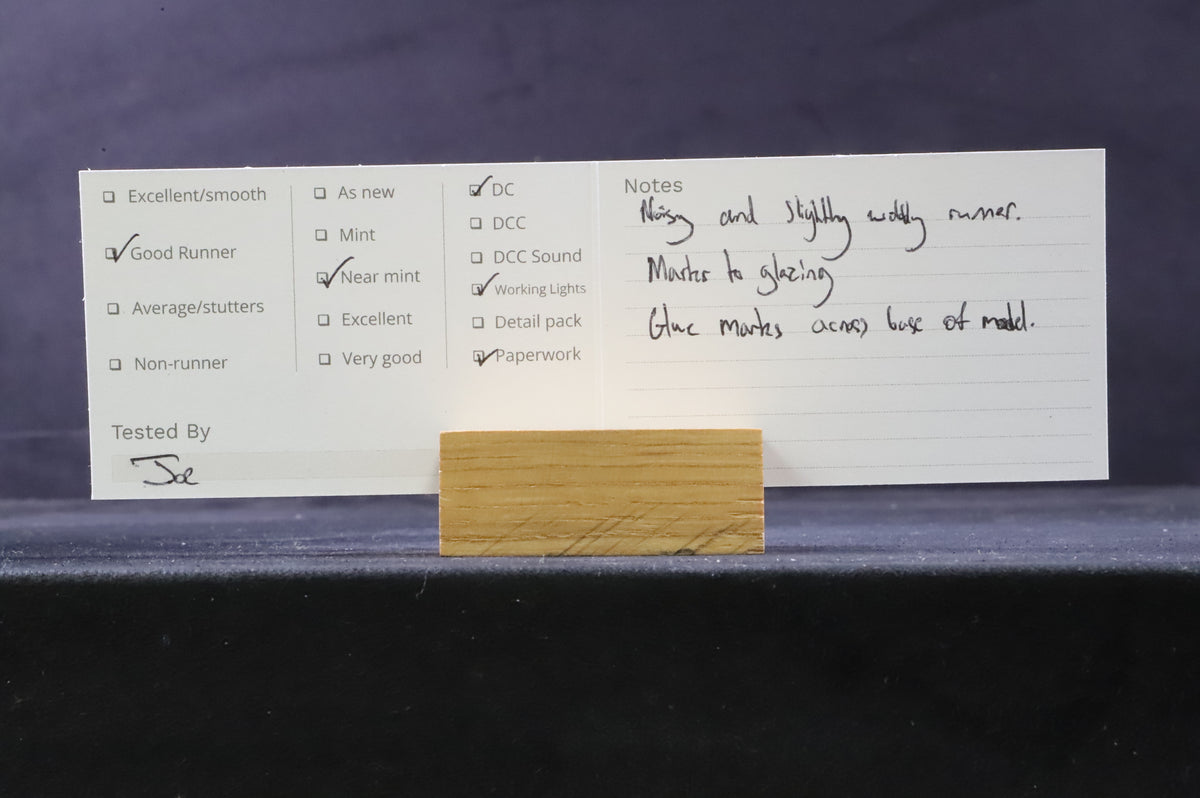 Excellent/smooth
Good Runner
Average/stutters
Non-runner
Tested By
Joe
As new
Mint
Near mint
Excellent
Very good
DC
DCC
DCC Sound
Working Lights
Detail pack
Paperwork
Notes
Noisy and slightly wobbly runner.
Marks to glazing
Glue marks across base of model.